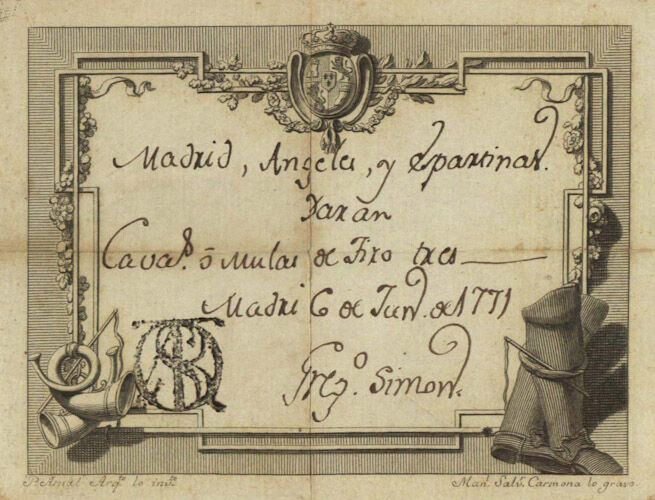 Madrid, Angeles, y Espartinas.
Daran
Cava.s ó Mulas de Tiro tres
Madrid 6 de Jun.o de 1771
Simon.
P. Arnal Arq.to lo inv.to
Man.l Salv.r Carmona lo gravo.